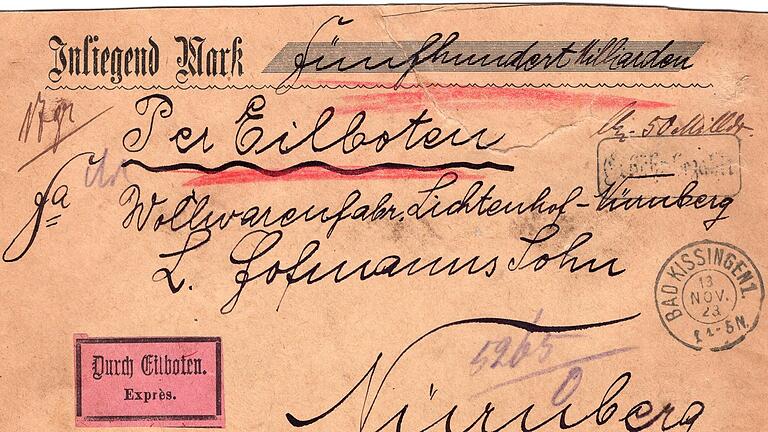 Inliegend Mark fünfhundert Milliarden
17 gr
Per Eilboten
fa
Wollwarenfabr. Lichtenhof-Nürnberg
L. Hofmanns Sohn
BAD KISSINGEN 1.
13
NOV.
23
Durch Eilboten.
Exprès.
5265
0
Nürnberg